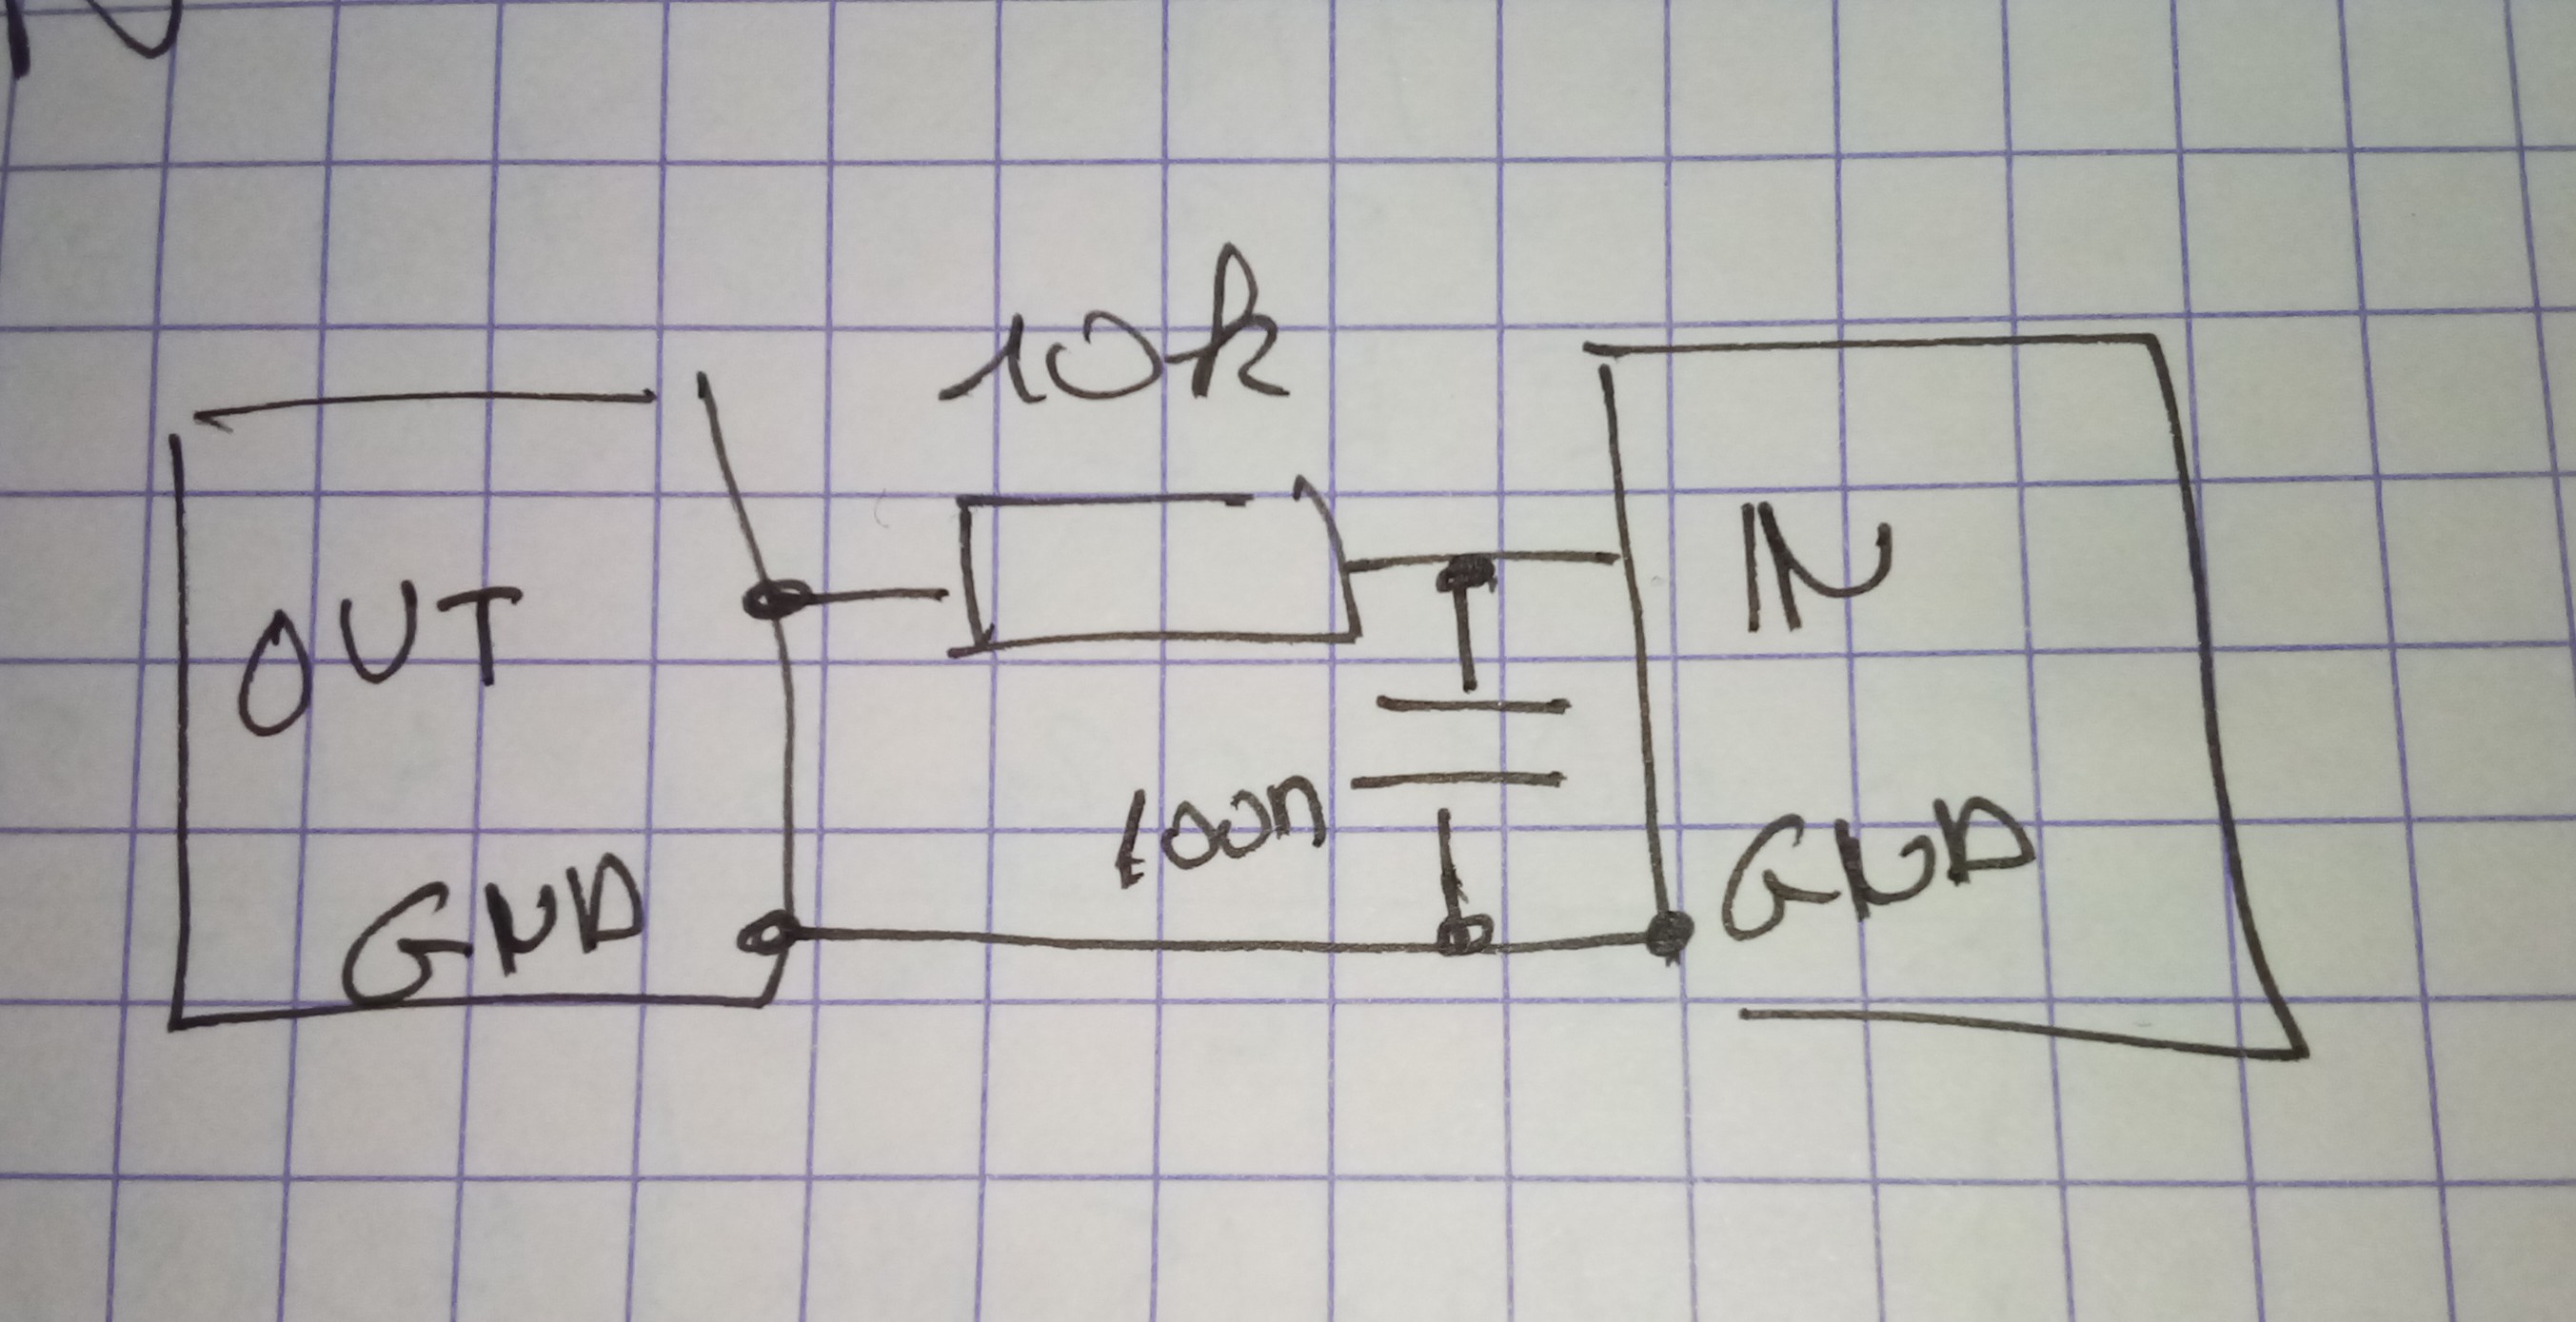 10k
OUT
IN
100n
GND
GND